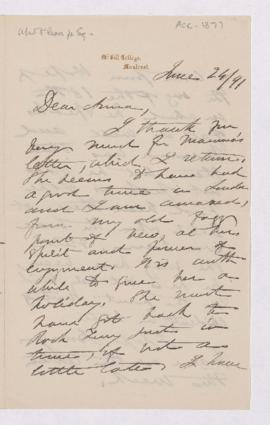 McGill College,
Montreal.
June 26/91
Dear Anna,
I thank you
very much for Mamma's
letter, which I return.
She seems to have had
a good time in
and I am amazed,
from my old
point of view, at her
spirit and power of
enjoyment. It is worth
while to give her a
holiday. She must
have got back to
just in
time, if not a
little late. I have